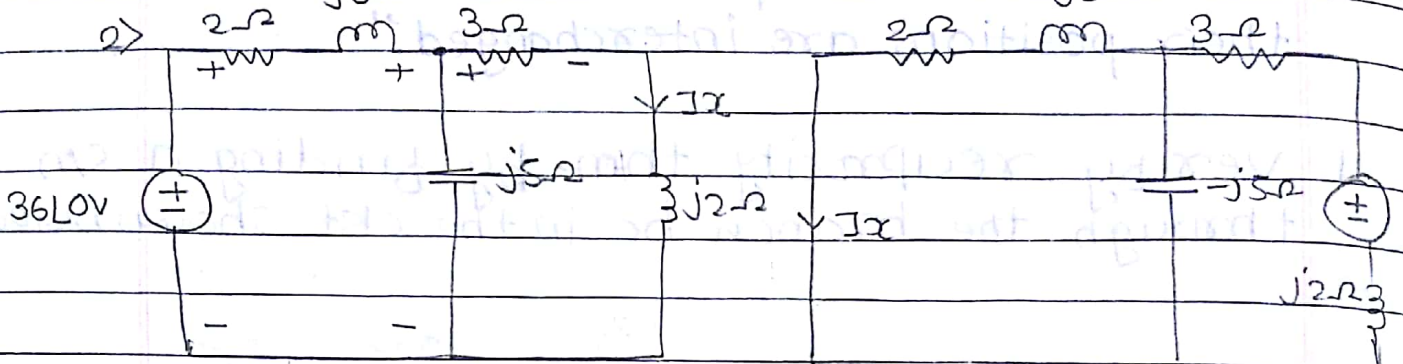 2> 2Ω 3Ω 2Ω 3Ω
+ + + -
Ix
36∠0V + - -j5Ω j2Ω Ix -j5Ω + -
j2Ω
- -